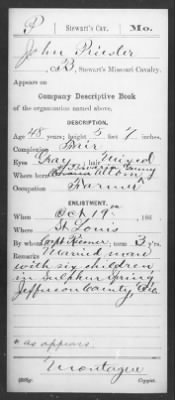 P Stewart's Cav. Mo.
John Priesler
Co. B, Stewart's Missouri Cavalry.
Appears on
Company Descriptive Book
of the organization named above.
DESCRIPTION.
Age 48 years; height 5 feet 7 inches.
Complexion Fair
Eyes Gray; hair Mixed
Where born Bavaria
Occupation Farmer
ENLISTMENT.
When Oct. 19th, 186
Where St. Louis
By whom Capt ; term 3 y'rs.
Remarks Married man
with six children
in Sulphur Spring
Jefferson County, Mo.
*as appears.
Montague
Copyist.